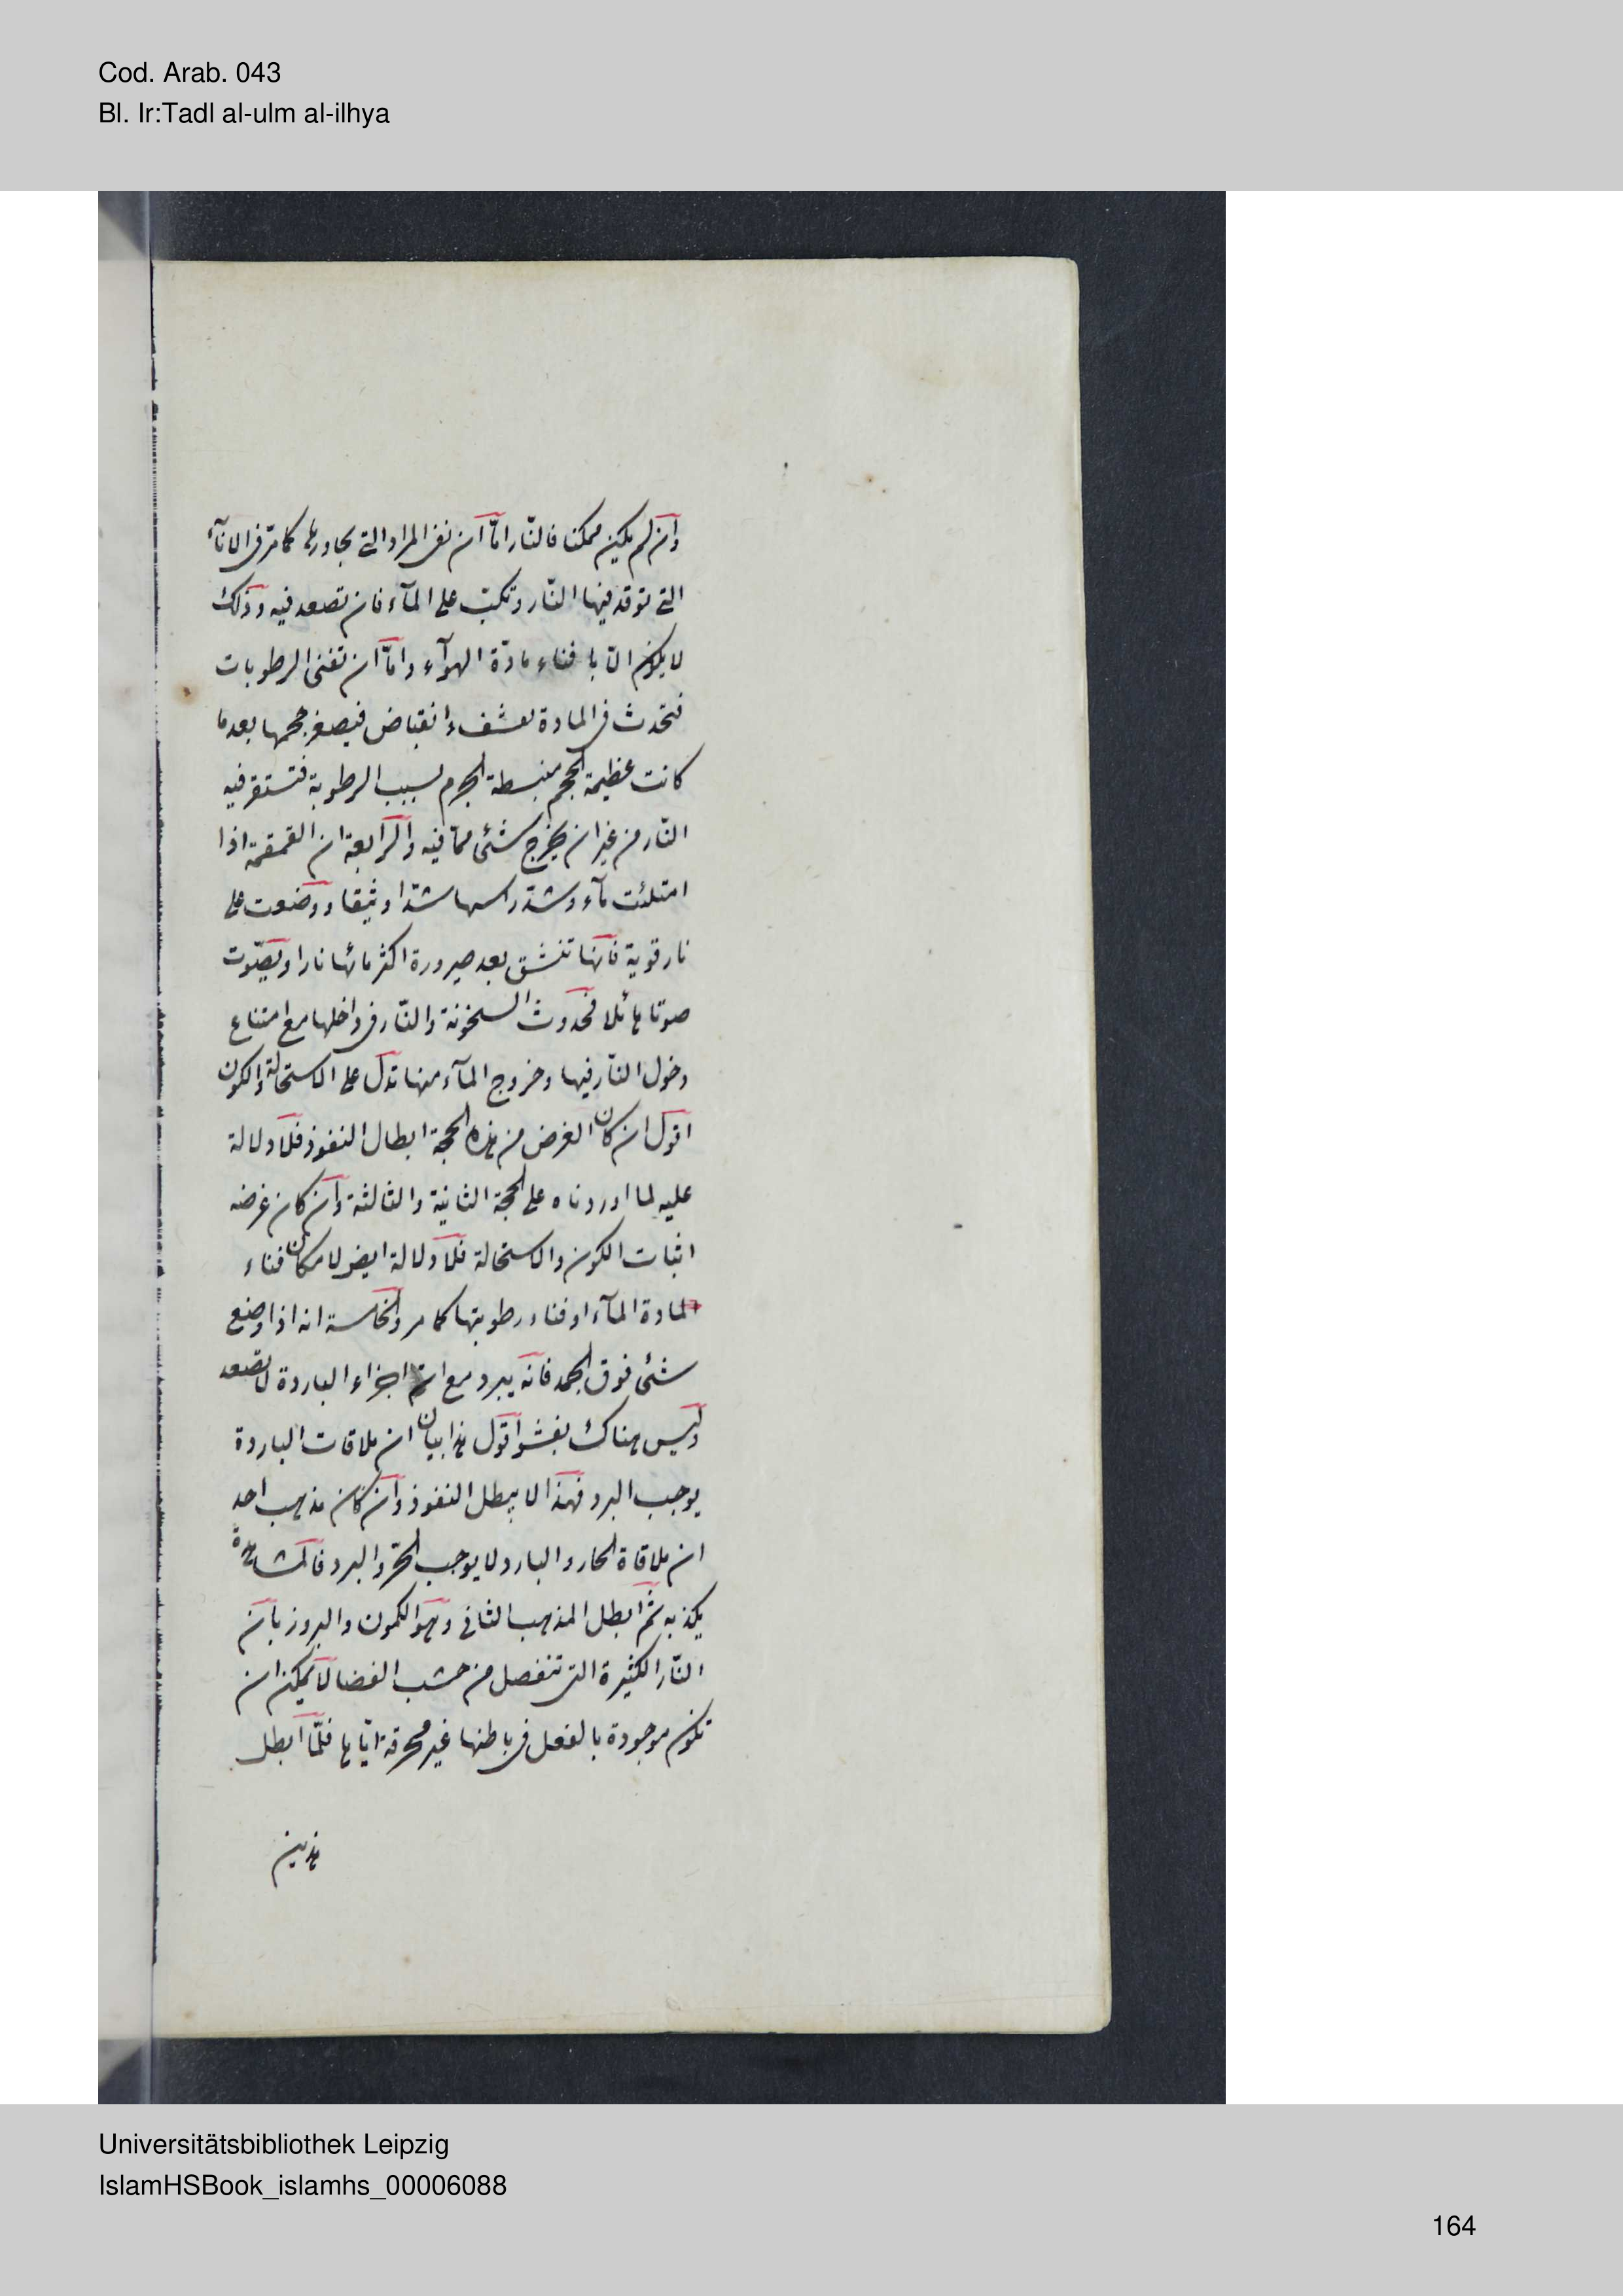 Cod. Arab. 043
Bl. Ir:Tadl al-ulm al-ilhya
وان لم يكن ممكنا فالنّار امّا ان تفنى المواد التى يجاورها كما مرّ فى الاناء
التى توقد فيها النّار وتكبّ على المآء فان تصعد فيه وذلك
لا يكون الّا بافناء مادّة الهوآء وامّا ان تفنى الرطوبات
فتحدث فى المادة تعشف وانقباض فيصغر حجمها بعد ما
كانت عظيمة الحجم منبسطة الجرم لسبب الرطوبة فتستقر فيه
النّار من غير ان يخرج شئ ممّا فيه والرابعة ان القمقمة اذا
امتلئت مآء وشدّ راسها شدّا وثيقا ووضعت على
نار قوية فانّها تنشق بعد صيرورة اكثر مائها نارا ويصوّت
صوتا هائلا فحدوث السخونة والنّار فى داخلها مع امتناع
دخول النّار فيها وخروج المآء منها تدل على الاستحالة والكون
اقول ان كان الغرض من هذه الحجة ابطال النفوذ فلا دلالة
عليه لما اوردناه على الحجة الثانية والثالثة وان كان غرضه
اثبات الكون والاستحالة فلا دلالة ايضا لامكان فناء
المادة المآء او فناء رطوبتها كما مر والخامسة انه اذا وضع
شئ فوق الجمد فانّه يبرد مع ان اجزاء الباردة لا تصعد
وليس هناك بفشو اقول هذا بيان ان ملاقات الباردة
يوجب البرد فهذا لا يبطل النفوذ وان كان مذهب احد
ان ملاقاة الحار والبارد لا يوجب الحرّ والبرد فالمشاهدة
يكذبه ثمّ ابطل المذهب الثانى وهو الكمون والبروز بان
النّار الكثيرة التى تنفصل من خشب الغضا لا يمكن ان
تكون موجودة بالفعل فى باطنها غير محرقة ايّاها فلمّا ابطل
هذين
Universitätsbibliothek Leipzig
IslamHSBook_islamhs_00006088
164